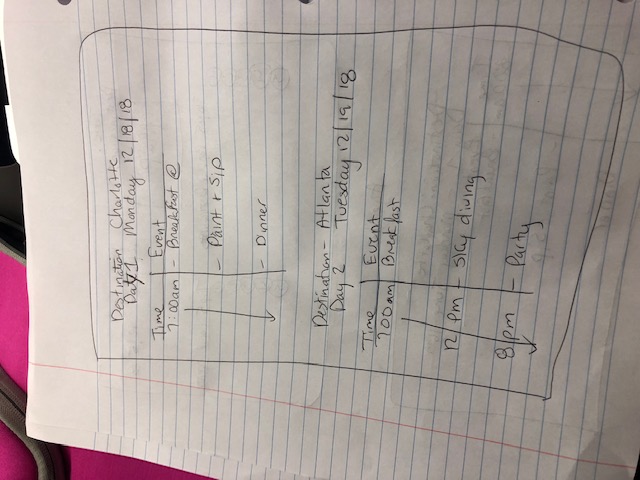 Destination Charlotte
Day 1 Monday 12/18/18
Time Event
7:00am - Breakfast @
- Paint + Sip
- Dinner
Destination - Atlanta
Day 2 Tuesday 12/19/18
Time Event
700am Breakfast
12 pm - Sky diving
8 pm - Party